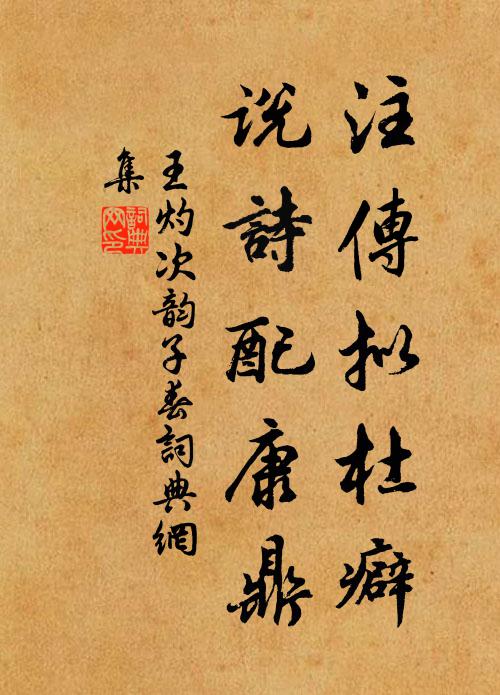 注傳拟杜癖
说詩配康鼎
王灼次韵子春詞典網
集
詞典網印